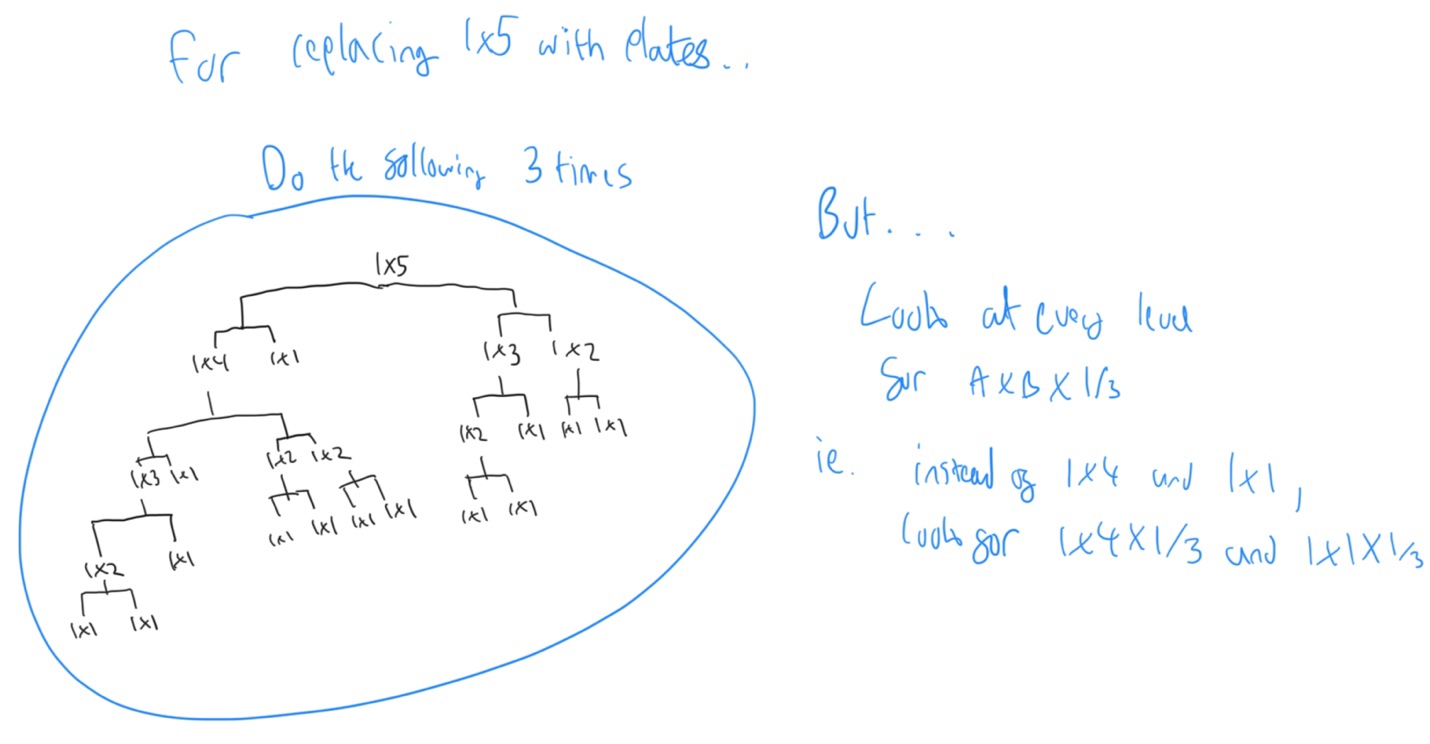 For replacing 1x5 with plates..
Do the following 3 times
1x5
1x4 1x1 1x3 1x2
1x2 1x1 1x1 1x1
1x3 1x1 1x2 1x2
1x1 1x1 1x1 1x1 1x1 1x1
1x2 1x1
1x1 1x1
But....
Look at every level
for AxBx1/3
ie. instead of 1x4 and 1x1,
look for 1x4x1/3 and 1x1x1/3